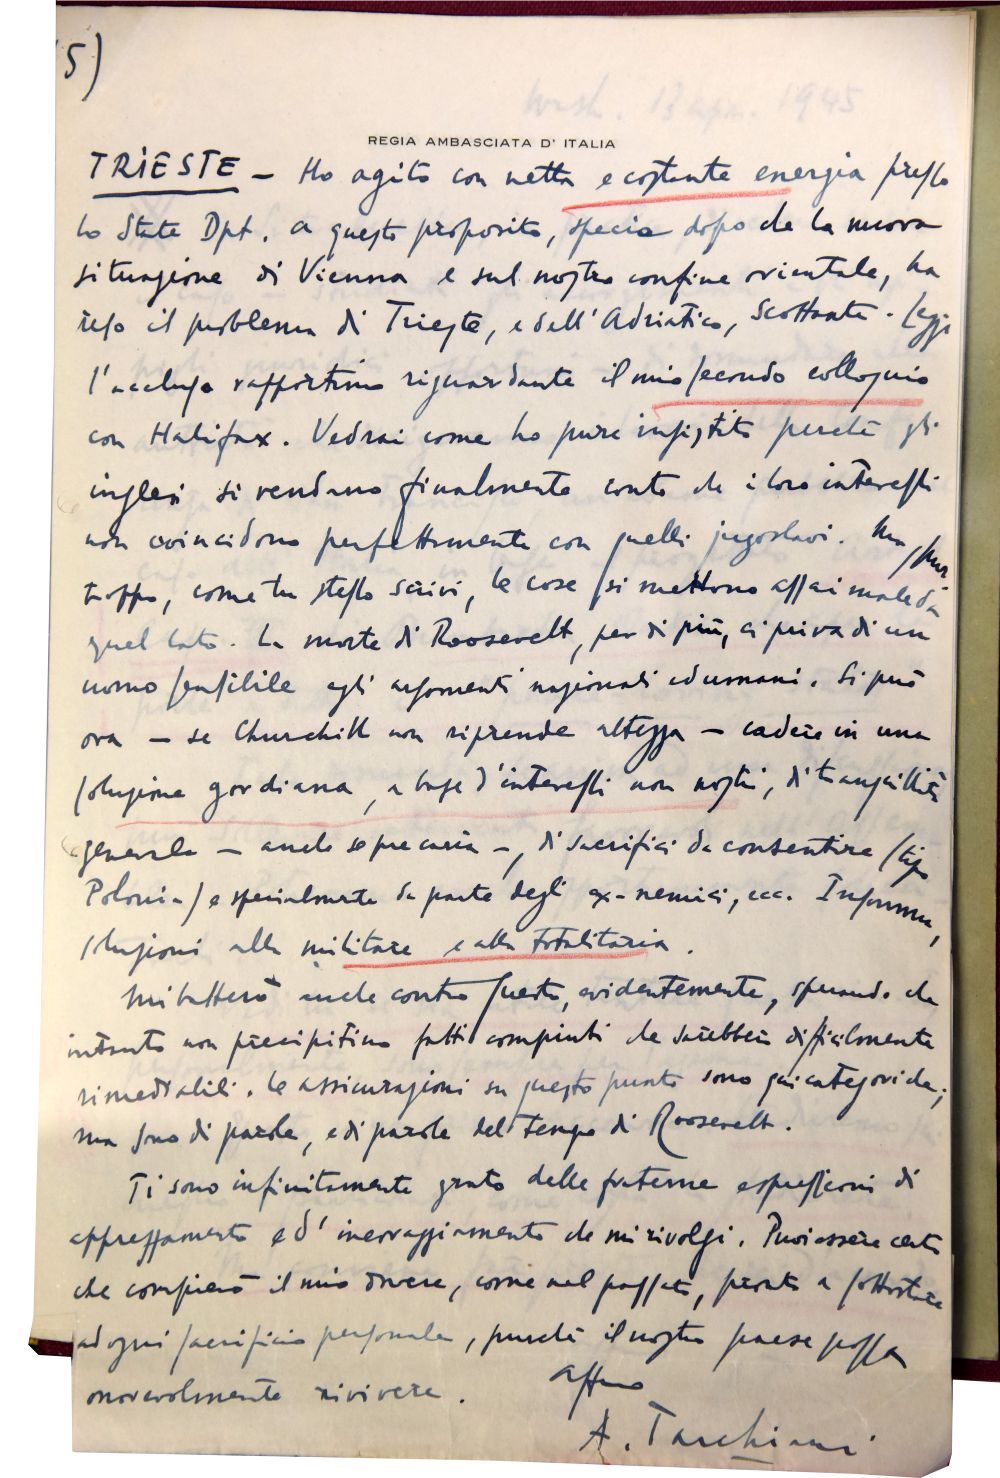 5)
Wash. 13 apr. 1945
REGIA AMBASCIATA D' ITALIA
TRIESTE - Ho agito con netta e costante energia presso
lo State Dpt. a questo proposito, specie dopo che la nuova
situazione di Vienna e sul nostro confine orientale, ha
reso il problema di Trieste, e dell'Adriatico, scottante. Leggi
l'accluso rapportino riguardante il mio secondo colloquio
con Halifax. Vedrai come ho pure insistito perchè gli
inglesi si rendano finalmente conto che i loro interessi
non coincidono perfettamente con quelli jugoslavi. Ma, pur
troppo, come tu stesso scrivi, le cose si mettono assai male da
quel lato. La morte di Roosevelt, per di più, ci priva di un
uomo sensibile agli argomenti nazionali ed umani. Si può
ora - se Churchill non riprende altezza - cadere in una
soluzione gordiana, a base d'interessi non nostri, di tranquillità
generale - anche se precaria -, di sacrifici da consentire (tipo
Polonia) e specialmente da parte degli ex-nemici, ecc. Insomma,
soluzioni alla militare e alla totalitaria.
Mi batterò anche contro questo, evidentemente, sperando che
intanto non precipitino fatti compiuti che sarebbero difficilmente
rimediabili. Le assicurazioni su questo punto sono categoriche;
ma sono di parole, e di parole del tempo di Roosevelt.
Ti sono infinitamente grato delle fraterne espressioni di
apprezzamento e d'incoraggiamento che mi rivolgi. Puoi essere certo
che compierò il mio dovere, come nel passato, pronto a sottostare
ad ogni sacrificio personale, purchè il nostro paese possa
onorevolmente rivivere.
Affmo
A. Tarchiani